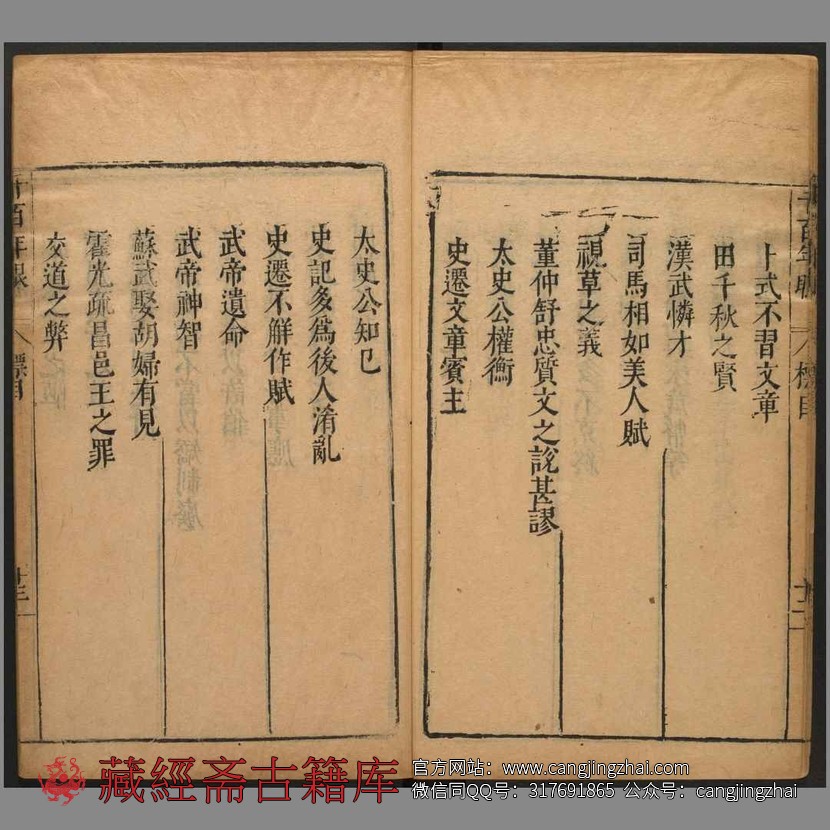 卜式不習文章
田千秋之賢
漢武憐才
司馬相如美人賦
視草之義
董仲舒忠質文之說甚謬
太史公權衡
史遷文章賓主
太史公知己
史記多爲後人淆亂
史遷不解作賦
武帝遺命
武帝神智
蘇武娶胡婦有見
霍光疏昌邑王之罪
交道之弊
百年眼
標目
十三
藏經斋古籍库
官方网站：www.cangjingzhai.com
微信同QQ号：317691865 公众号：cangjingzhai